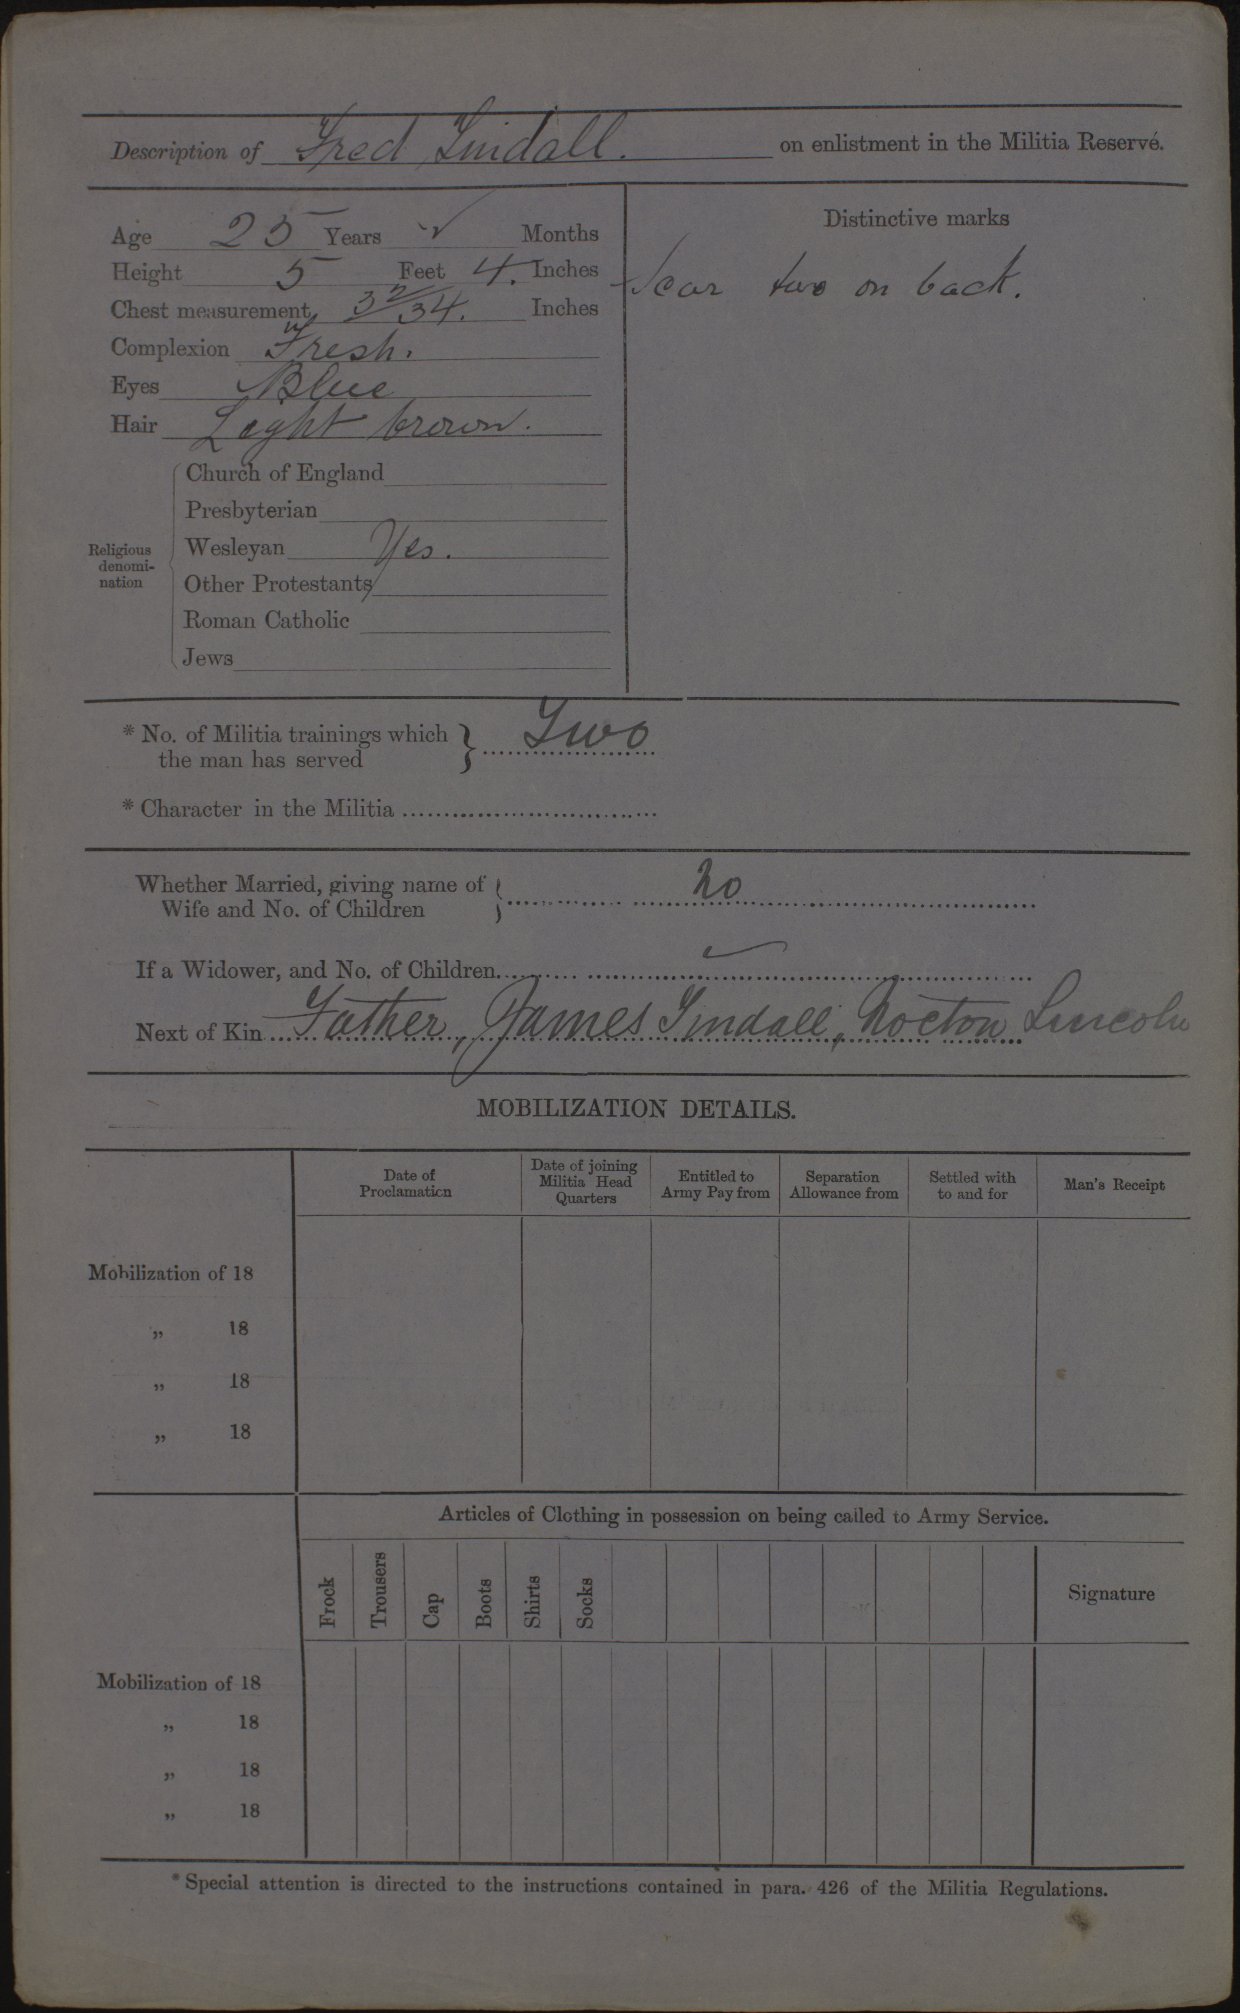 Description of Fred Tindall. on enlistment in the Militia Reserve.
Age 25 Years Months
Height 5 Feet 4. Inches
Chest measurement 32/34. Inches
Complexion Fresh.
Eyes Blue
Hair Light brown.
Religious denomi-nation
Church of England
Presbyterian
Wesleyan Yes.
Other Protestants
Roman Catholic
Jews
Distinctive marks
Scar two on back.
* No. of Militia trainings which } Two
the man has served
* Character in the Militia
Whether Married, giving name of } No
Wife and No. of Children
If a Widower, and No. of Children
Next of Kin Father, James Tindall, Nocton Lincoln
MOBILIZATION DETAILS.
Date of Proclamation
Date of joining Militia Head Quarters
Entitled to Army Pay from
Separation Allowance from
Settled with to and for
Man's Receipt
Mobilization of 18
„ 18
„ 18
„ 18
Articles of Clothing in possession on being called to Army Service.
Frock Trousers Cap Boots Shirts Socks Signature
Mobilization of 18
„ 18
„ 18
„ 18
* Special attention is directed to the instructions contained in para. 426 of the Militia Regulations.